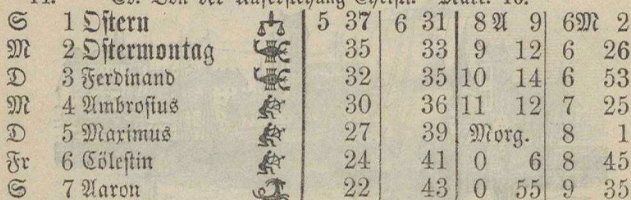 S 1 Ostern 5 37 6 31 8 A 9 6 M 2
M 2 Ostermontag 35 33 9 12 6 26
D 3 Ferdinand 32 35 10 14 6 53
M 4 Ambrosius 30 36 11 12 7 25
D 5 Maximus 27 39 Morg. 8 1
Fr 6 Cölestin 24 41 0 6 8 45
S 7 Aaron 22 43 0 55 9 35